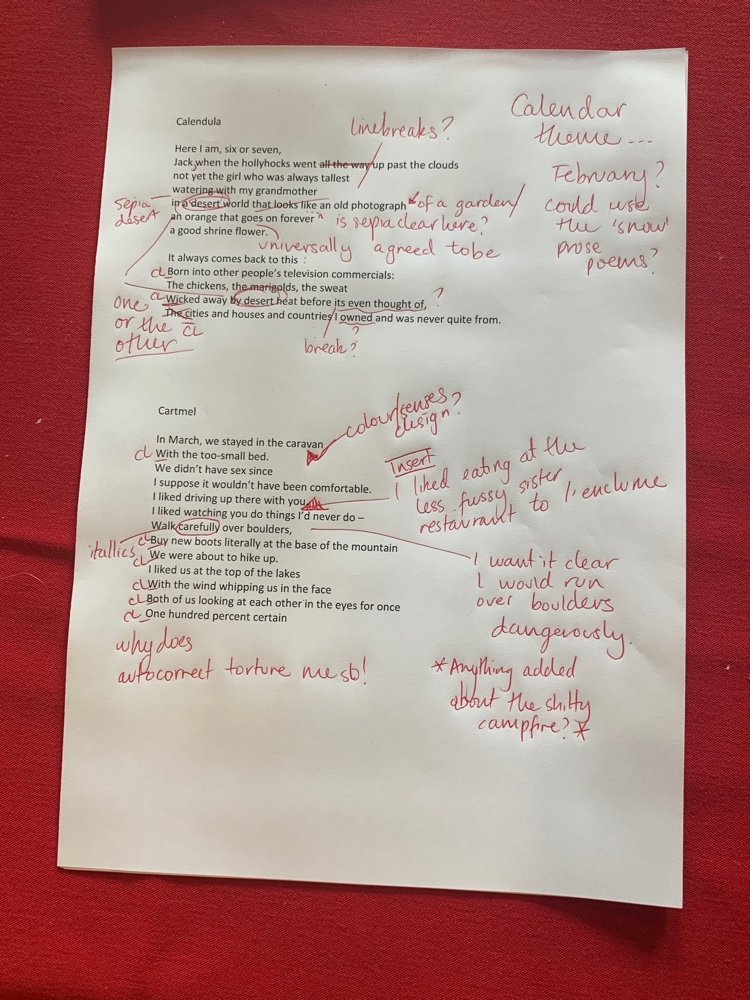 Calendula
linebreaks?
Calendar
theme...
February?
could use
the 'snow'
prose
poems?
Here I am, six or seven,
Jack, when the hollyhocks went all the way up past the clouds
not yet the girl who was always tallest
watering with my grandmother
in a desert world that looks like an old photograph
of a garden/
sepia
desert
an orange that goes on forever
is sepia clear here?
a good shrine flower.
universally agreed to be
It always comes back to this :
cl Born into other people's television commercials:
The chickens, the marigolds, the sweat
cl Wicked away by desert heat before its even thought of,
?
The cities and houses and countries I owned and was never quite from.
cl
?
one
or the
other
break?
Cartmel
colour/senses
design?
In March, we stayed in the caravan
cl With the too-small bed.
We didn't have sex since
I suppose it wouldn't have been comfortable.
I liked driving up there with you
Insert
I liked eating at the
less fussy sister
restaurant to l'enclume
I liked watching you do things I'd never do –
Walk carefully over boulders,
itallics
cl Buy new boots literally at the base of the mountain
cl We were about to hike up.
I liked us at the top of the lakes
cl With the wind whipping us in the face
cl Both of us looking at each other in the eyes for once
cl One hundred percent certain
I want it clear
I would run
over boulders
dangerously.
why does
autocorrect torture me so!
*Anything added
about the shitty
campfire?*